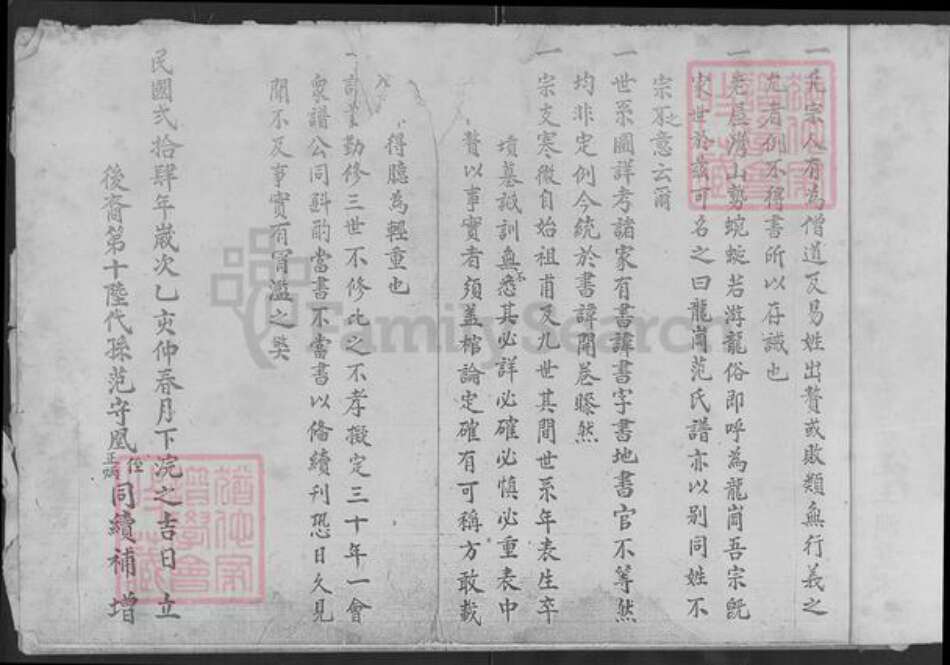 一 凡宗人有為僧道及易姓出贅或敗類無行義之
尤者例不得書所以存譏也
一 灣山勢蜿蜒若游龍俗即呼為龍崗吾宗既
家世於茲可名之曰龍崗范氏譜亦以別同姓不
宗之意云爾
一 世系圖詳考諸家有書諱書字書地書官不等然
均非定例今統於書諱開卷瞭然
一 宗支寒微自始祖甫及九世其間世系年表生卒
墳墓誌訓無不悉其必詳必確必慎必重表中
贅以事實者須蓋棺論定確有可稱方敢載
入
得臆為輕重也
一 勤修三世不修比之不孝擬定三十年一會
眾譜公同斟酌當書不當書以俻續刊恐日久見
聞不及事實有冒濫之獘
民國弍拾肆年嵗次乙亥仲春月下浣之吉日 立
後裔第十陸代孫范守凰 同續補增
FamilySearch